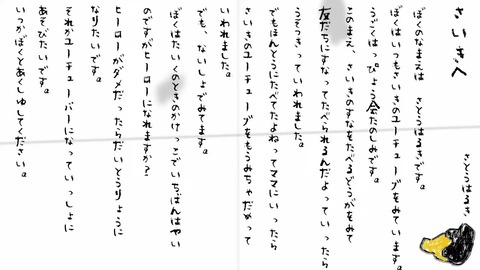 さいきへ
さとうはるき
ぼくのなまえは さとうはるきです。
ぼくはいつもさいきのユーチューブをみています。
うごくはっぴょう会たのしみです。
このまえ、さいきのすなをたべるどうがをみて
友だちにすなってたべられるんだよっていったら
うそつきっていわれました。
でもほんとうにたべてたよねってママにいったら
さいきのユーチューブをもうみちゃだめって
いわれました。
でも、ないしょでみてます。
ぼくはたいくのときのかけっこでいちばんはやい
のですがヒーローになれますか?
ヒーローがダメだったらだいとうりょうに
なりたいです。
それかユーチューバーになっていっしょに
あそびたいです。
いつかぼくとあくしゅしてください。